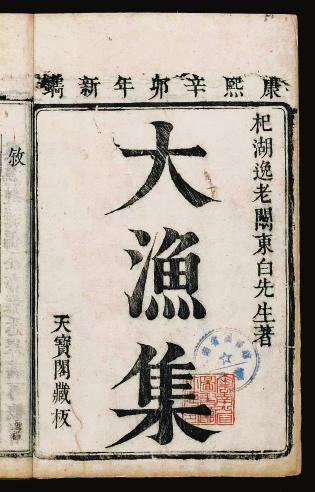 康熙辛卯年新鐫
杞湖逸老闞東白先生著
大漁集
天寶閣藏板
攷